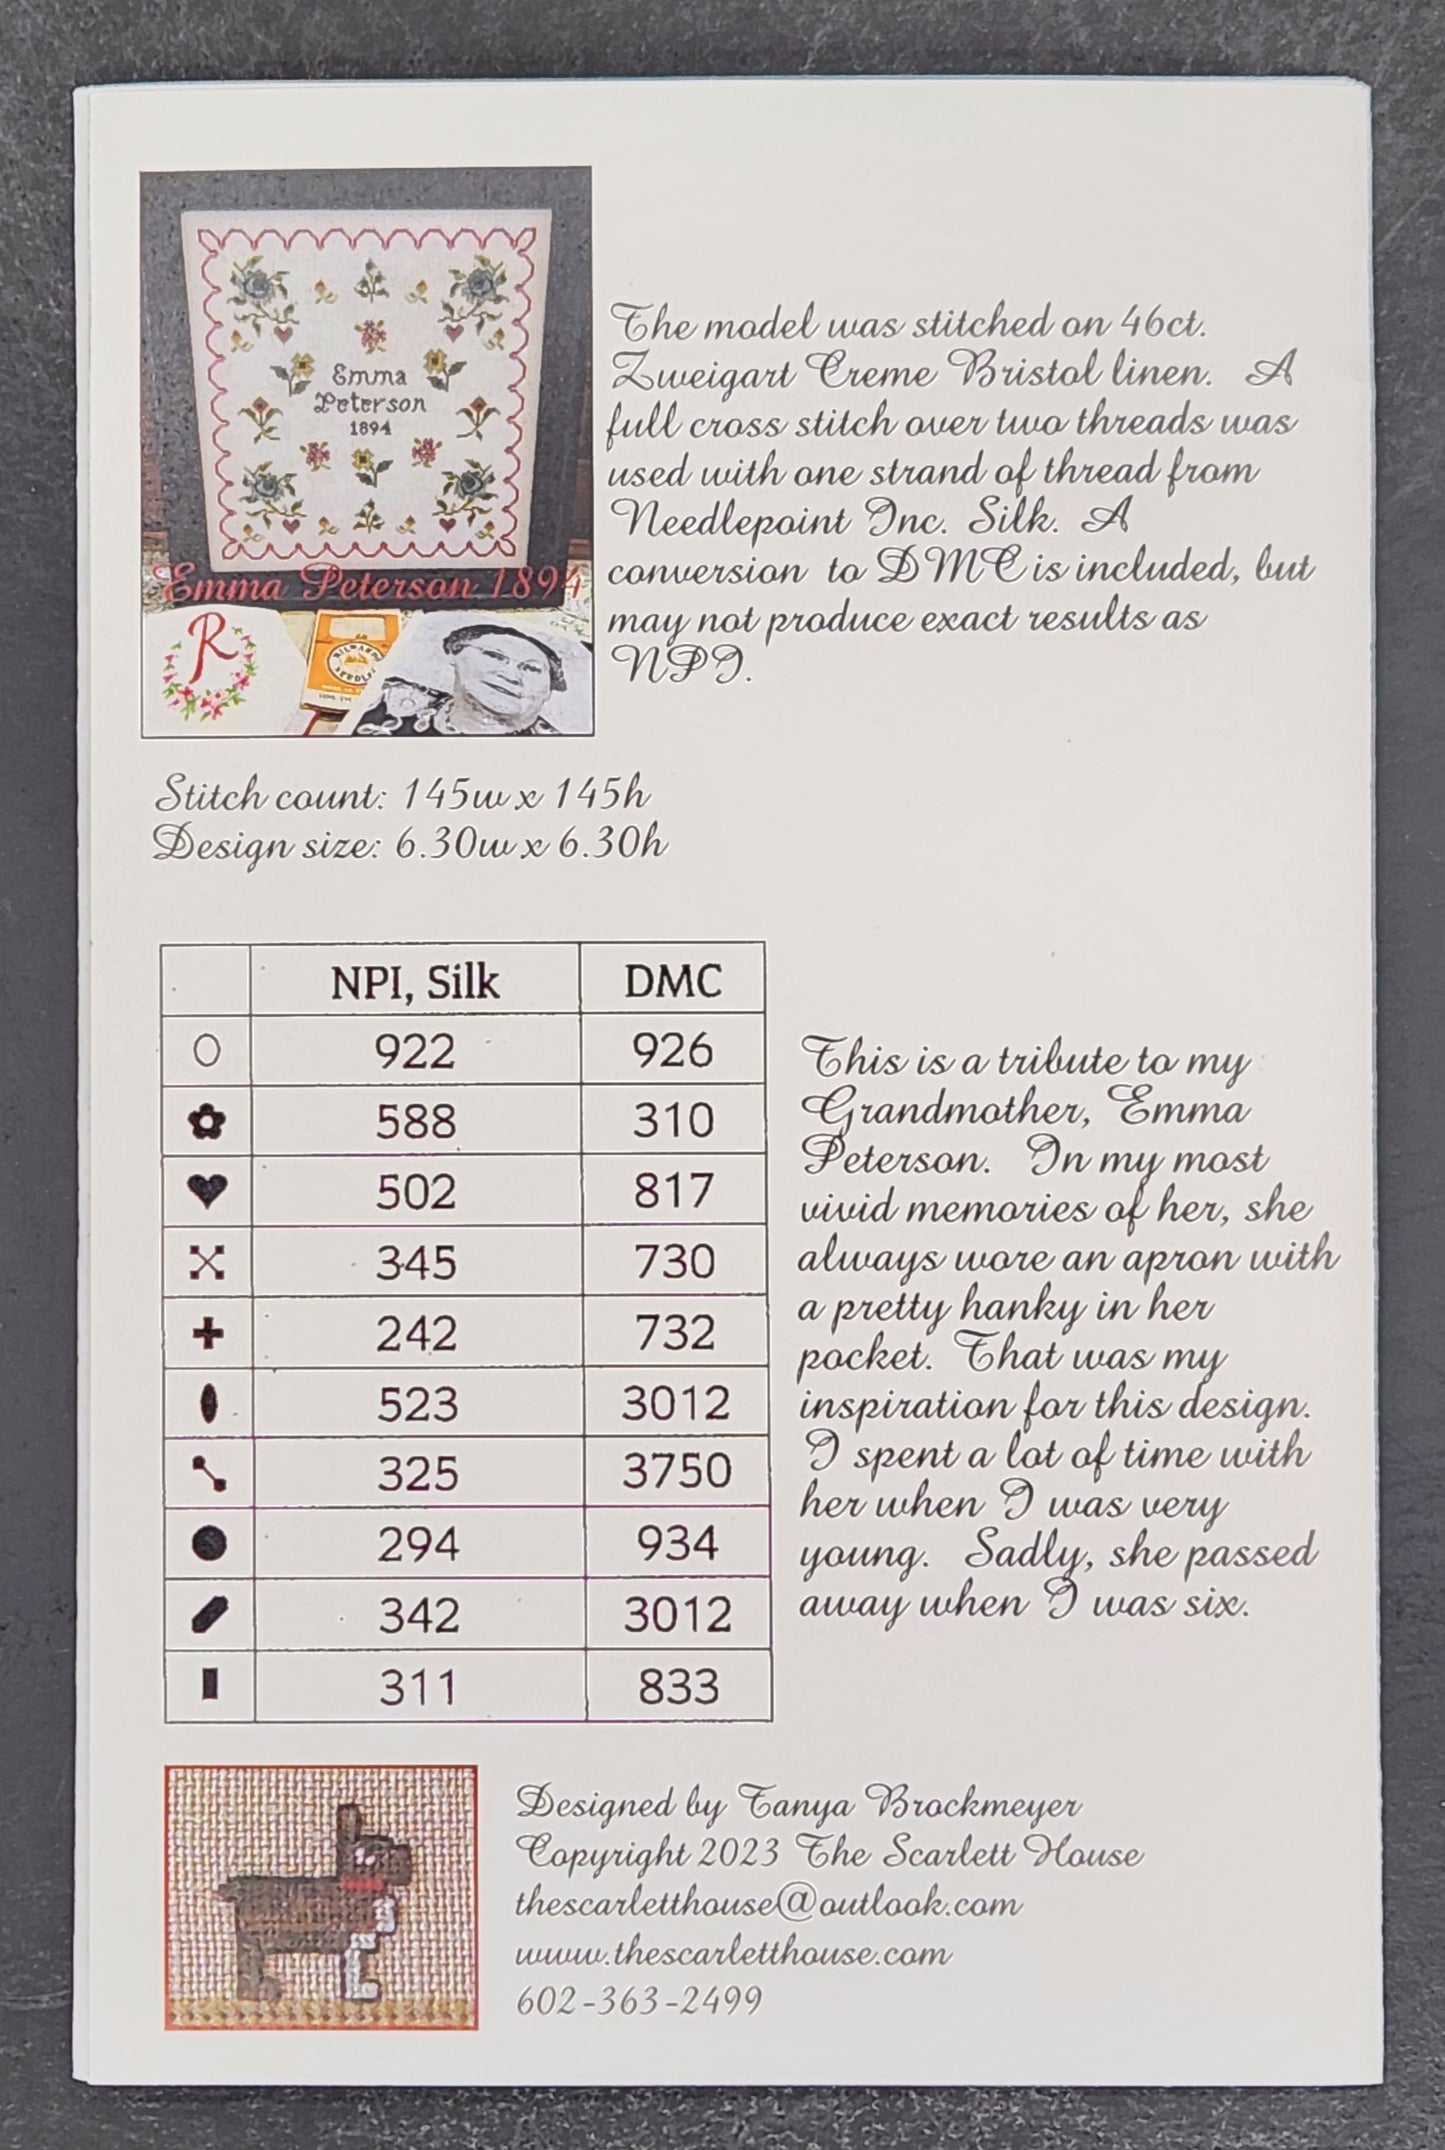 Emma
Peterson
1894
Emma Peterson 1894
R
MILWARDS
NEEDLES
The model was stitched on 46ct.
Zweigart Creme Bristol linen. A
full cross stitch over two threads was
used with one strand of thread from
Needlepoint Inc. Silk. A
conversion to DMC is included, but
may not produce exact results as
NPI.
Stitch count: 145w x 145h
Design size: 6.30w x 6.30h
NPI, Silk DMC
922 926
588 310
502 817
345 730
242 732
523 3012
325 3750
294 934
342 3012
311 833
This is a tribute to my
Grandmother, Emma
Peterson. In my most
vivid memories of her, she
always wore an apron with
a pretty hanky in her
pocket. That was my
inspiration for this design.
I spent a lot of time with
her when I was very
young. Sadly, she passed
away when I was six.
Designed by Tanya Brockmeyer
Copyright 2023 The Scarlett House
thescarletthouse@outlook.com
www.thescarletthouse.com
602-363-2499